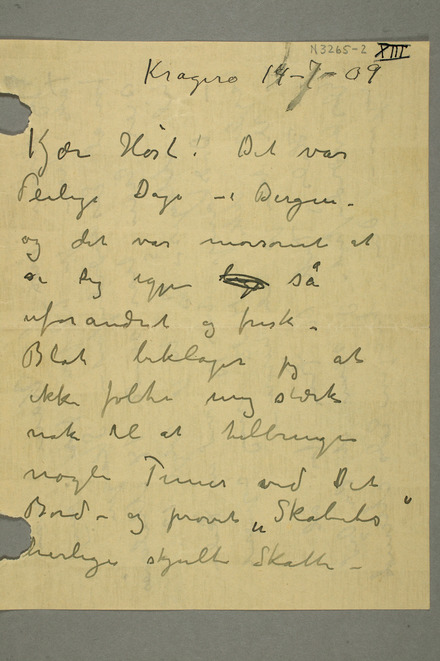 N3265-2 XIII
Kragerø 14-7-09
Kjær Høst! Det var
deilige Dage – i Bergen –
og det var morsomt at
se Dig igjen så
uforandret og frisk –
Blot beklager jeg at
ikke følte mig stærk
nok til at tilbringe
nogle Timer ved Det
Bord – og prøvet „Skabets"
herlige skjulte Skatte –